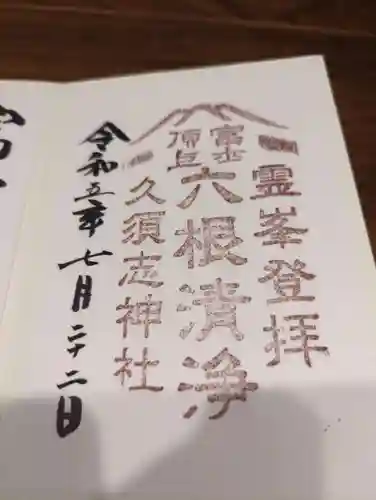 霊峯登拝
富士
頂上
六根清浄
久須志神社
令和五年七月二十二日